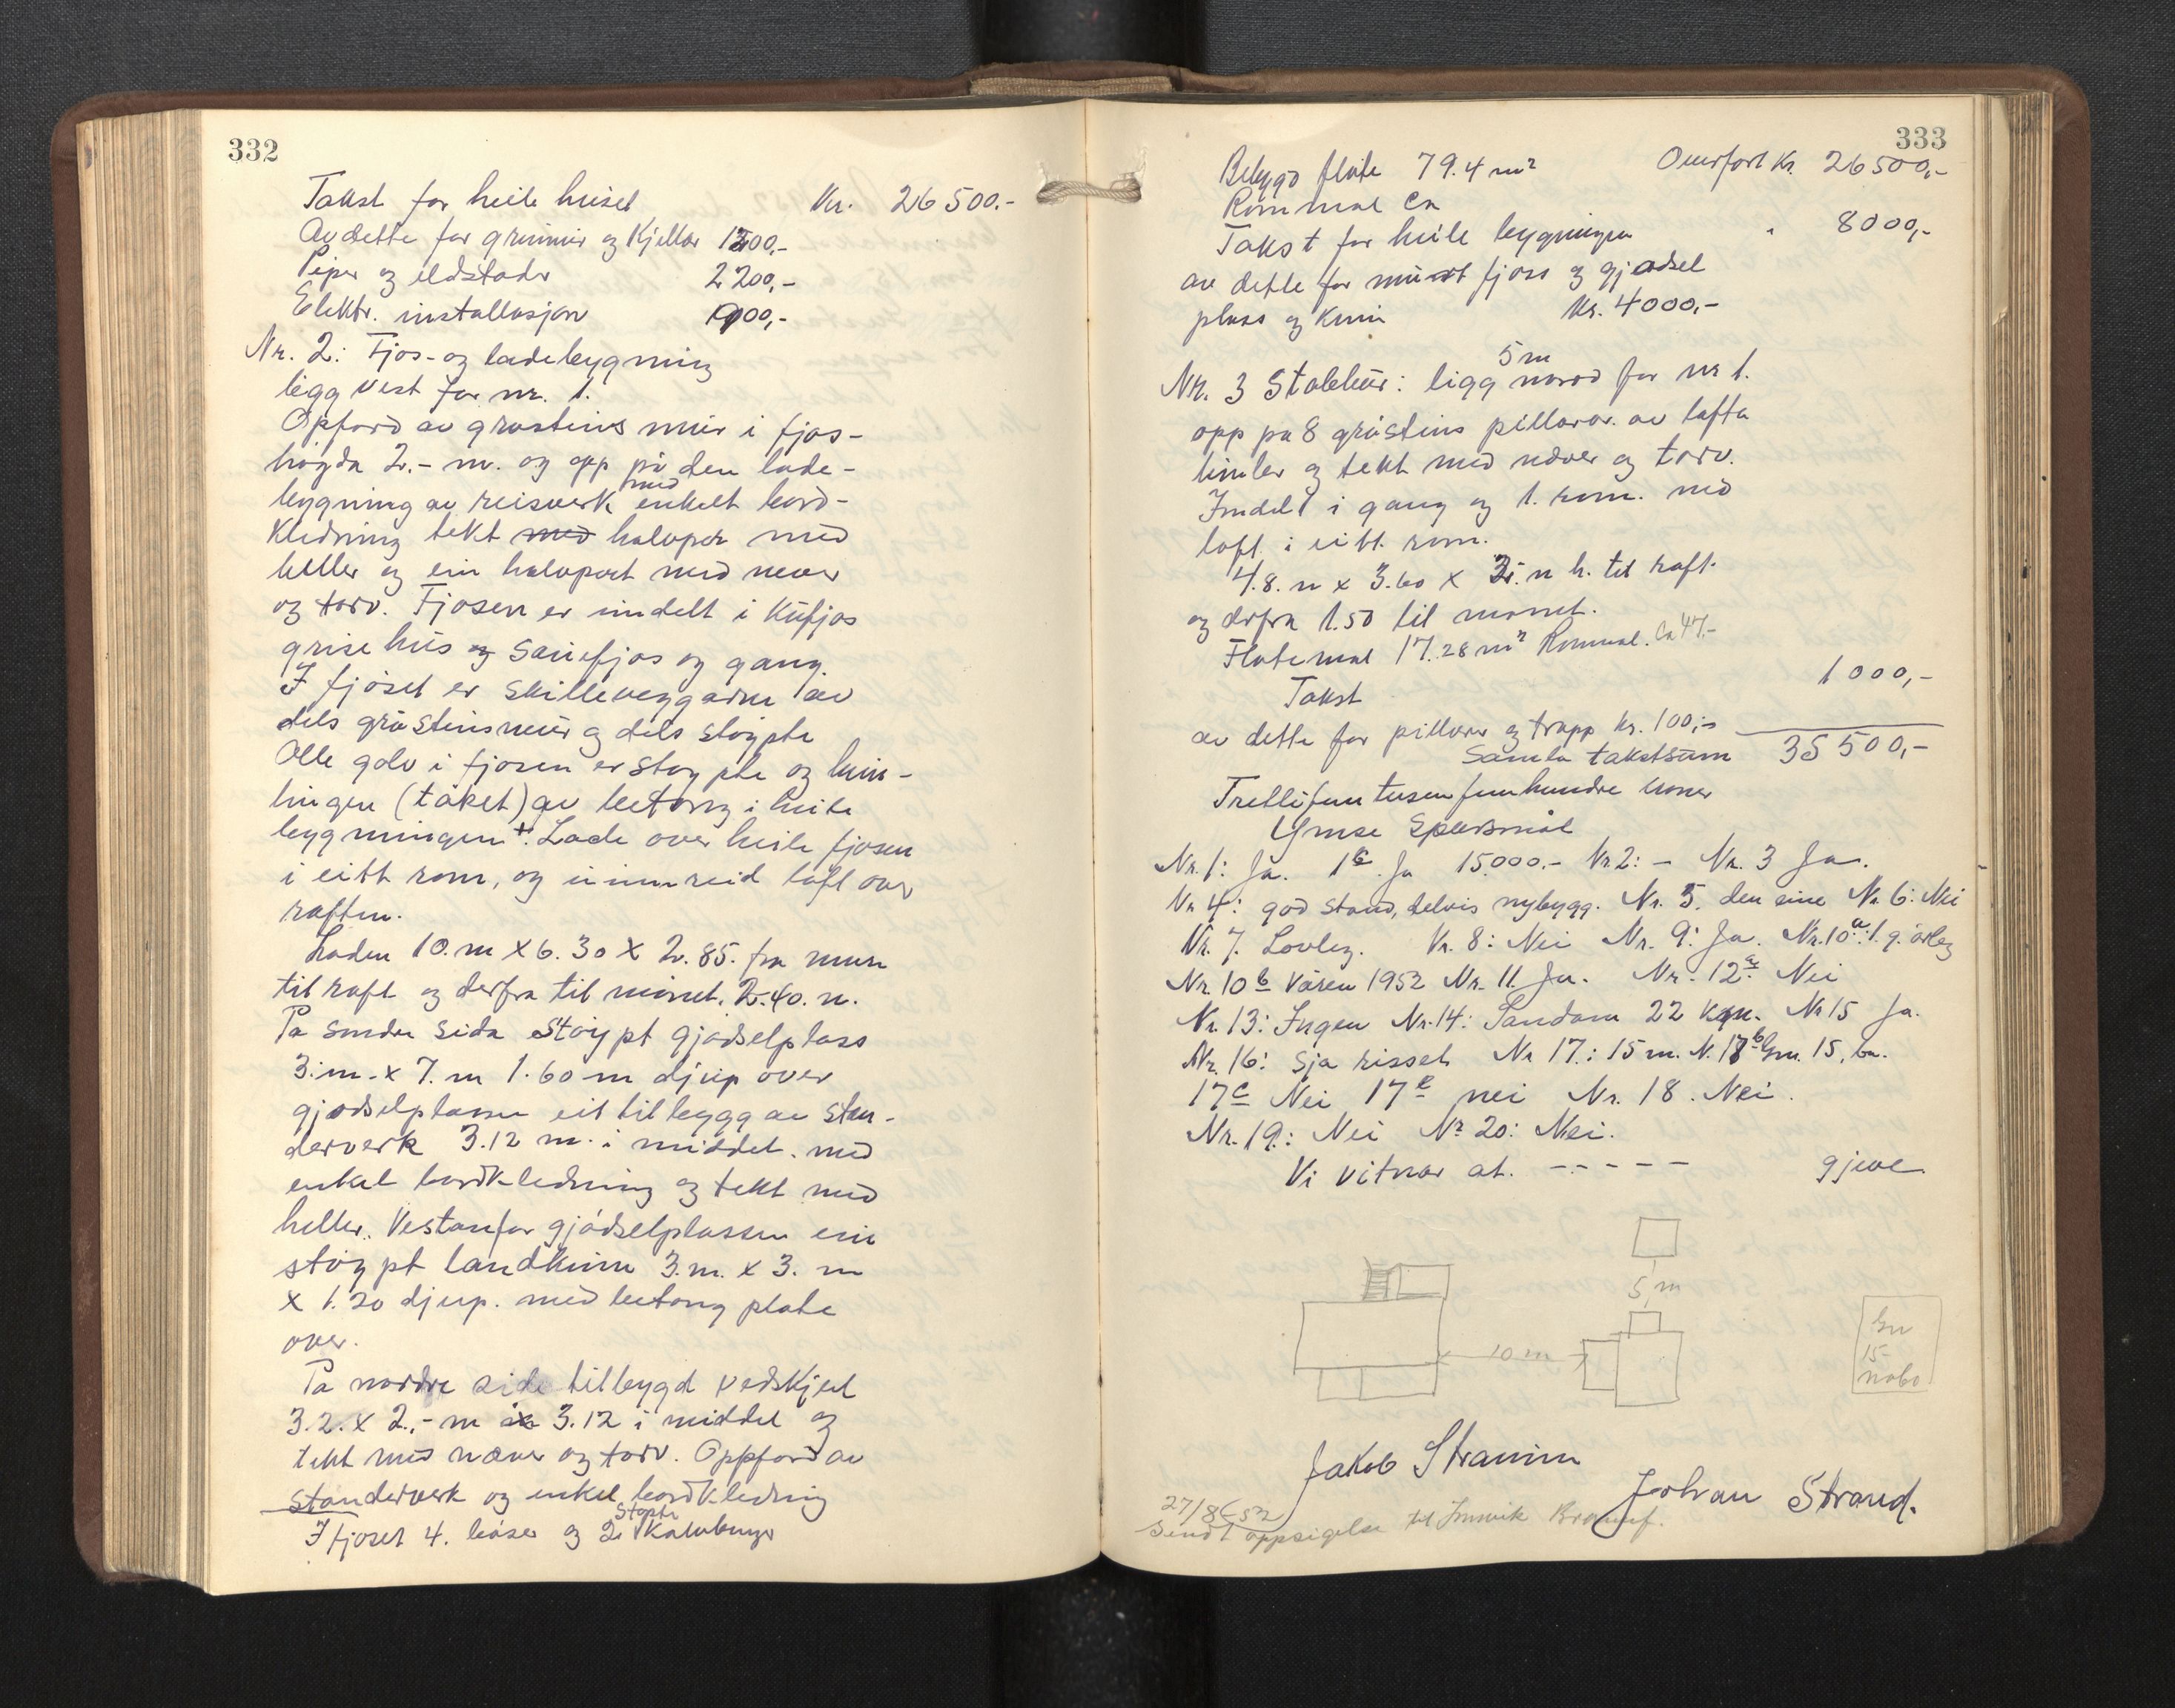 332
Takst for heile huset Kr. 26500.-
Av dette for grunnur og Kjellar 1200,-
Piper og eldstader 2200,-
Elektr. installasjon 900,-
Nr. 2: Fjos- og ladebygning
ligg vest for nr. 1.
Opførd av gråsteins mur i fjos-
høgda 2.- m. og opp på den lade-
bygning av reisverk med enkelt bord-
Kledning tekt med halvpar med
heller og ein halvpart med never
og torv. Fjosen er inndelt i Kufjos
grisehus og Sauefjos og gang.
I fjøset er Skilleveggarne av
dels gråsteinsmur og dels støypte
Alle golv i fjosen er støypte og him-
lingen (taket) av betong i heile
bygningen +. Lade over heile fjosen
i eitt rom, og innreid loft over
raften.
Laden 10. m x 6.30 x 2.85. fra muren
til raft og derfra til mønet. 2.40. m.
På søndre side støypt gjødselplass
3.m. x 7. m 1.60 m djup over
gjødselplassen eit tilbygg av sten-
derverk 3.12 m. i middel. med
enkel bordkledning og tekt med
heller. Vestanfor gjødselplassen ein
støypt landkum 3.m. x 3. m
x 1.20 djup. med betong plate
over.
På nordre side tilbygd vedskjul
3.2. x 2,- m x 3.12 i middel og
tekt med næver og torv. Oppførd av
standerverk og enkel bordkledning
I fjøset 4. båser og 2. støpte Kalvbinger
333
Bebygd flate 79.4 m² Overført Kr. 26500,-
Rommål Ca
Takst for heile bygningen " 8000,-
av dette for murt fjøs og gjødsel
plass og Kum Kr. 4000,-
Nr. 3 Stabbur: ligg 5 m norod for nr 1.
opp på 8 gråsteins pillarar. av lafta
timber og tekt med næver og torv.
Inndelt i gang og 1. rom. med
loft i eitt rom.
4.8. m x 3.60 x 2. m h. til raft.
og derfra 1.50 til mønet.
Flatemål 17.28 m² Rommål. Ca 47.-
Takst 1000,-
av dette for pillarer og trapp kr. 100,-
Samla takstsum 35500,-
Trettifem tusen femhundre kroner
Ymse Spørsmål
Nr. 1: Ja. 1c. Ja 15000.- Nr 2: - Nr. 3 Ja.
Nr 4: god stand, delvis nybygg. Nr. 5. den eine Nr. 6: Nei
Nr. 7. Lovleg. Nr. 8: Nei Nr. 9: Ja. Nr. 10a: 1. g. årleg
Nr. 10b Våren 1952 Nr. 11. Ja. Nr. 12a Nei
Nr. 13: Ingen Nr. 14: Sandane 22 Km. Nr 15 Ja.
Nr. 16: Sjå risset Nr 17.: 15 m. N. 17b Gnr. 15, bn.
17c Nei 17e nei Nr. 18. Nei.
Nr. 19.: Nei Nr 20: Nei.
Vi vitnar at. - - - - - gjeve
5 m
10 m
Gn
15
nabo
Jakob Straume
Johan Strand.
27/8-52
Sendt oppsigelse til Innvik Brannf.